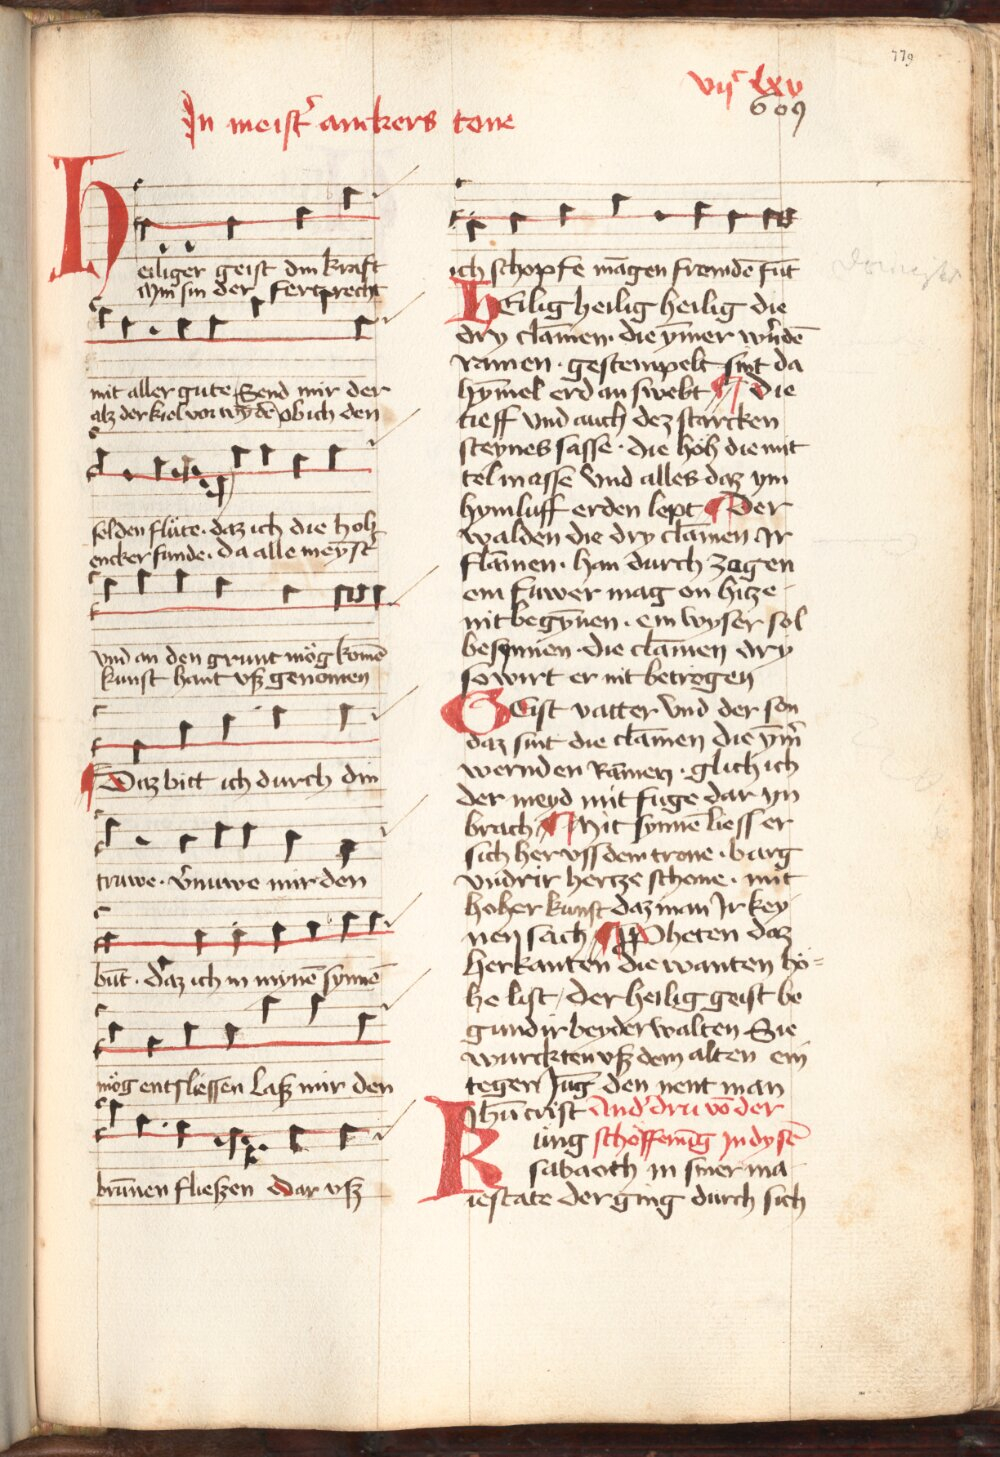 779
vijc lxv
609
In meist' anckers tone
Heiliger geist din kraft
Min sin der fert sprecht
mit aller gute Send mir der
alz der kiel vor wydē ob ich den
selden flüte · daz ich die holtz
encker funde · da alle meyst'
vnd an den grunt mög komē
kunst hant vß genomen
Daz bitt ich durch din
truwe · v'nuwe mir den
būt · daz ich in mynē synnē
mög entsliessen Laß mir den
brūnen fließen dar vß
ich schopfe māgen fremdē fūt
HEilig heilig heilig die
dry clāmen · die ȳmer w'ndē
ramen · gestempelt sint da
hȳmel erd an swebt Die
tieff vnd auch dez starcken
steynes sasse · die höh die mit
tel masse vnd alles daz ym
hymluff erden lept Der
walden die dry clāmen Ir
flāmen · han durch zogen
ein fuwer mag on hitze
nit begȳnen · ein wyser sol
besynnen · die clāmen dry
so wirt er nit betrogen
GEist vatter vnd der son
daz sint die clāmen die ȳm'
wernden Rāmen · glich ich
der meyd mit fuge dar yn
brach Mit synnē liess er
sich her vss dem trone · barg
vndrir hertze schone · mit
hoher kunst daz man Ir key
nen sach Ppheten daz
herkanten die wanten hö=
he list / der heilig geist be
gund ir beyder walten Sie
wurckten vß dem alten ein
tegen Jūg den nent man
Jhm crist And' dru vō der
Kūng schöffenūg In dysē
sabaoth in siner ma
iestate der ging durch sich